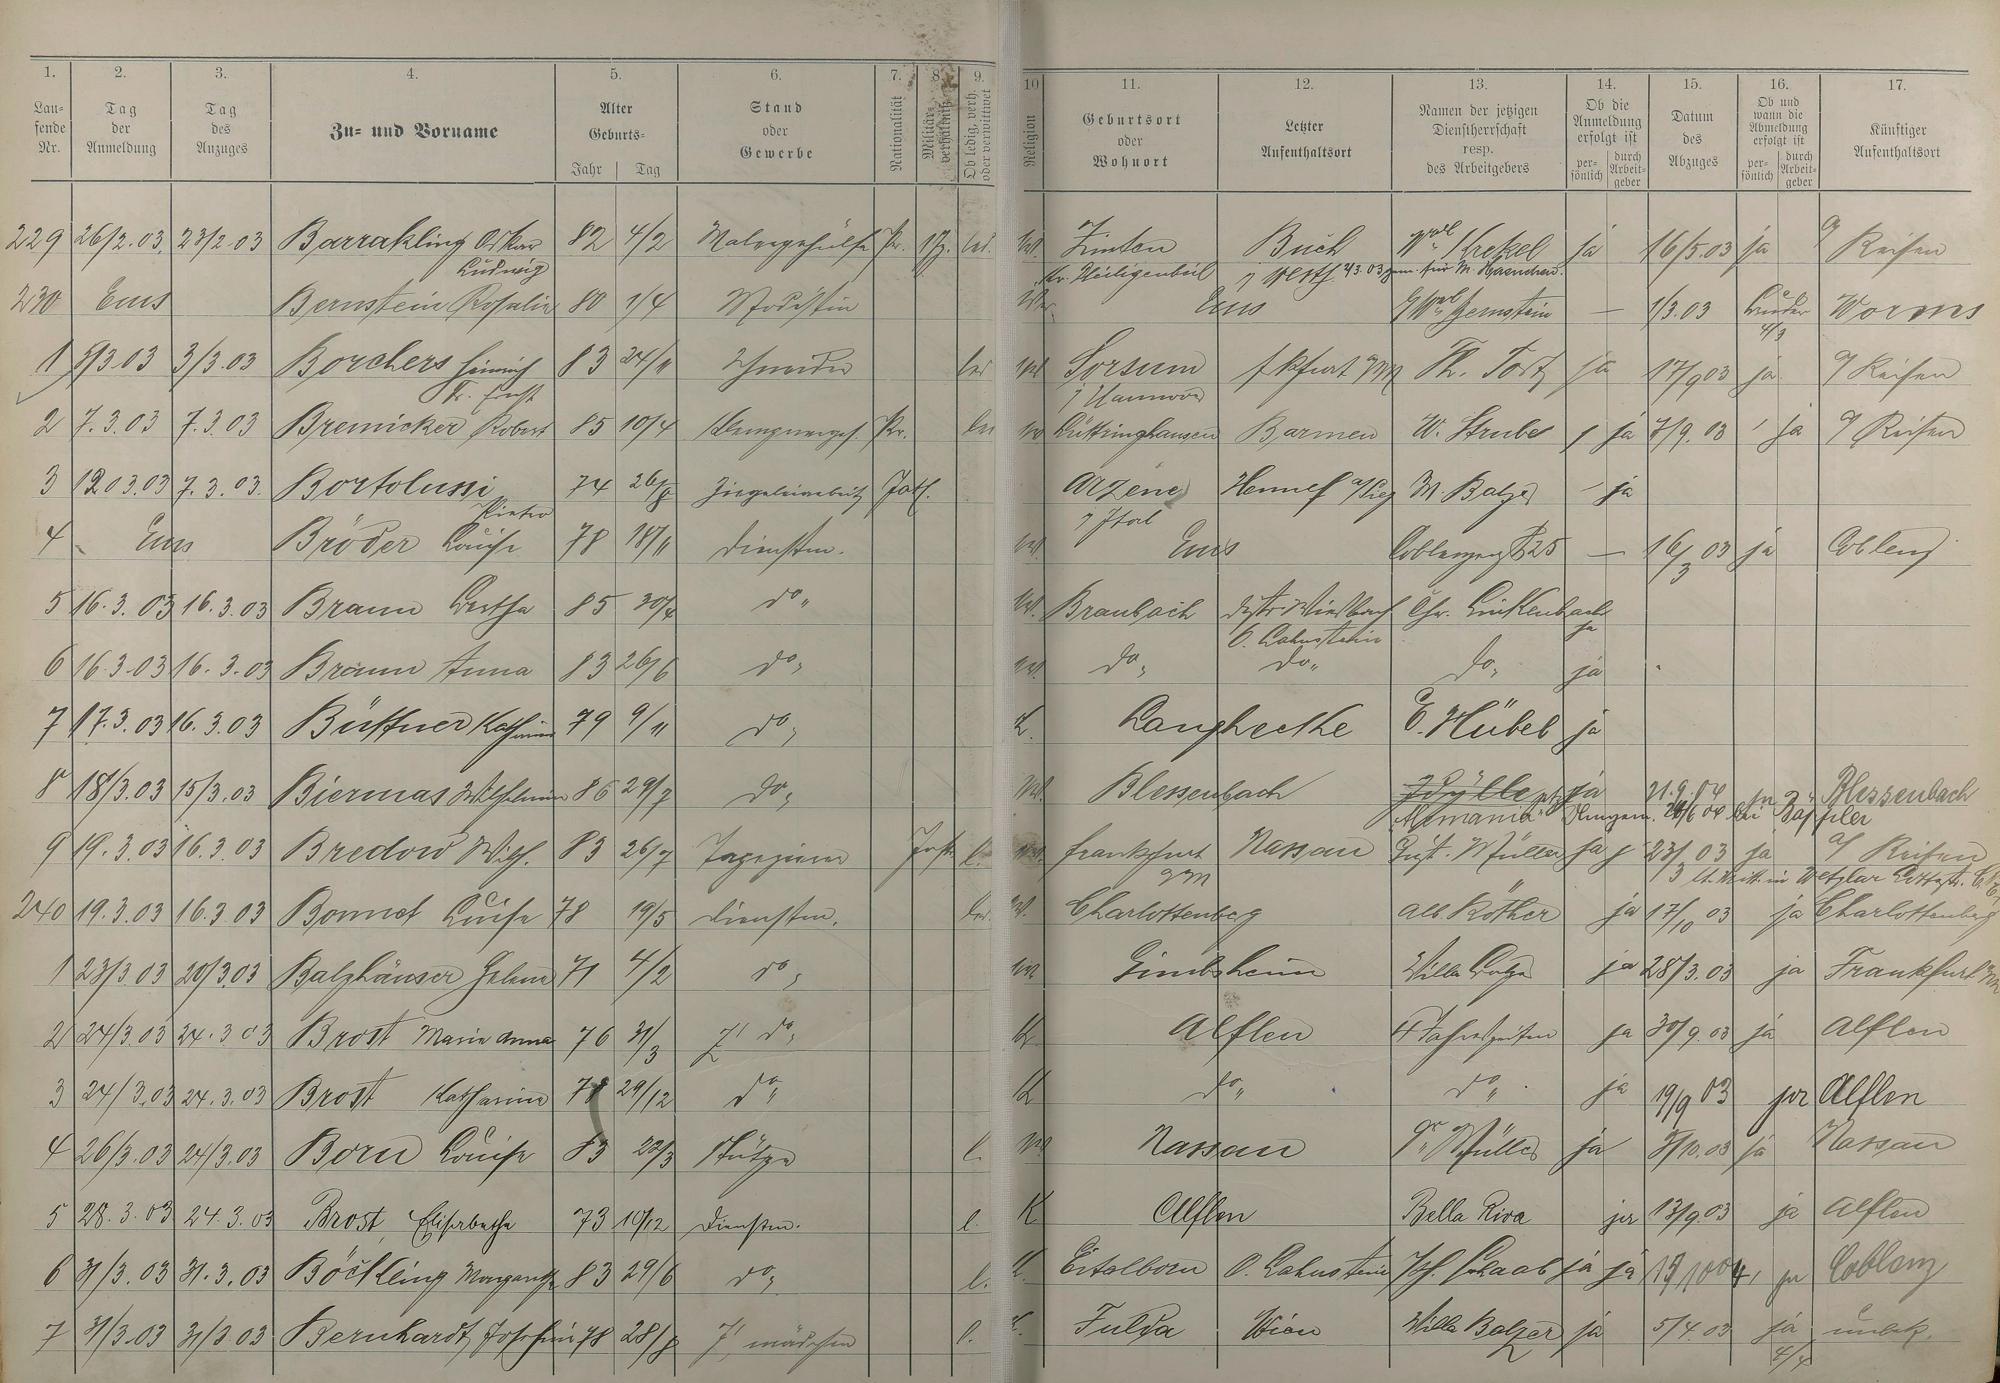 1. 2. 3. 4. 5. 6. 7. 8. 9. 10 11. 12. 13. 14. 15. 16. 17.
Laufende Nr. Tag der Anmeldung Tag des Anzuges Zu- und Vorname Alter Geburts- Jahr Tag Stand oder Gewerbe Nationalität Militärverhältniß Ob ledig, verh. oder verwittwet Religion Geburtsort oder Wohnort Letzter Aufenthaltsort Namen der jetzigen Dienstherrschaft resp. des Arbeitgebers Ob die Anmeldung erfolgt ist persönlich durch Arbeitgeber Datum des Abzuges Ob und wann die Abmeldung erfolgt ist persönlich durch Arbeitgeber Künftiger Aufenthaltsort
229 26/2.03. 23/2.03 Barrakling Oskar 82 4/2 Malergehülfe Pr. led. Zinten Buch Krekel ja 16/5.03 ja a/ Reisen
Ludwig Kr. Heiligenbeil
230 Ems Bernstein Rosalie 80 1/4 Modistin Ems Bernstein — 1/3.03 Worms
4/3
1 3/3.03 Borchers Heinrich 83 24/11 Schneider led Sorsum Fkfurt a/M Th. Tost ja 17/9 03 ja a/ Reisen
Fr. Ernst Hannover
2 7.3.03 7.3.03 Bremicker Robert 85 10/4 Klempnerges. Pr. led Lüttringhausen Barmen W. Strube ja 7/9. 03 ja a/ Reisen
3 12 03.03 7.3.03. Bortolussi 74 26/8 Ziegeleiarbeiter Ital. Arzene Hennef a/Sieg M. Balzer ja
Pietro Ital
4 Ems Bröder Louise 78 18/11 Dienstm. Ems Coblenzerstr 25 — 16/3 03 ja Coblenz
5 16.3.03 16.3.03 Braun Bertha 85 30/4 do Braubach Chr. Linkenbach
O. Lahnstein ja
6 16.3.03 16.3.03 Braun Anna 83 26/6 do do do do ja
7 17.3.03 16.3.03 Büttner Katharina 79 9/11 do K. Langhecke E. Hübel ja
8 18/3.03 15/3.03 Biermas Wilhelmine 86 29/7 do Blessenbach Idylle ja 21.9.04 Blessenbach
Alemania
9 19.3.03 16.3.03 Bredow Wilh. 83 26/7 Tapezierer l. Frankfurt Nassau Gust. Müller ja 23/3 03 ja a/ Reisen
a/M
240 19.3.03 16.3.03 Bonnet Luise 78 19/5 Dienstm. led. Charlottenberg Alb Röther ja 17/10 03 ja Charlottenberg
1 23/3 03 20/3.03 Balzhäuser Helene 71 4/2 do Gimbsheim Villa ja 28/3.03 ja Frankfurt a/M
2 24/3.03 24.3 03 Brost Marie Anna 76 31/3 do K Alflen 4 Jahreszeiten ja 30/9.03 ja Alflen
3 24/3.03 24.3.03 Brost Katharina 78 29/12 do K do do ja 19/9 03 ja Alflen
4 26/3.03 24/3.03 Born Louise 83 22/3 Stütze l. Nassau Müller ja 3/10.03 ja Nassau
5 28.3.03 24.3.03 Brost, Elisabetha 73 10/12 Dienstm. l. K Alflen Bella Riva ja 13/9.03 ja Alflen
6 31/3.03 31.3.03 Böckling Margaretha 83 29/6 do l. Eitelborn O. Lahnstein Schaab ja ja ja Coblenz
7 31/3.03 31/3.03 Bernhardt Josefine 78 28/8 mädchen l. Fulda Wien Villa Balzer ja 5/4.03 ja unbek.
4/4